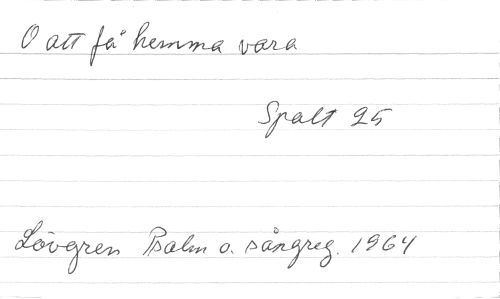 O att få hemma vara
Spalt 25
Lövgren Psalm o. sångreg. 1964